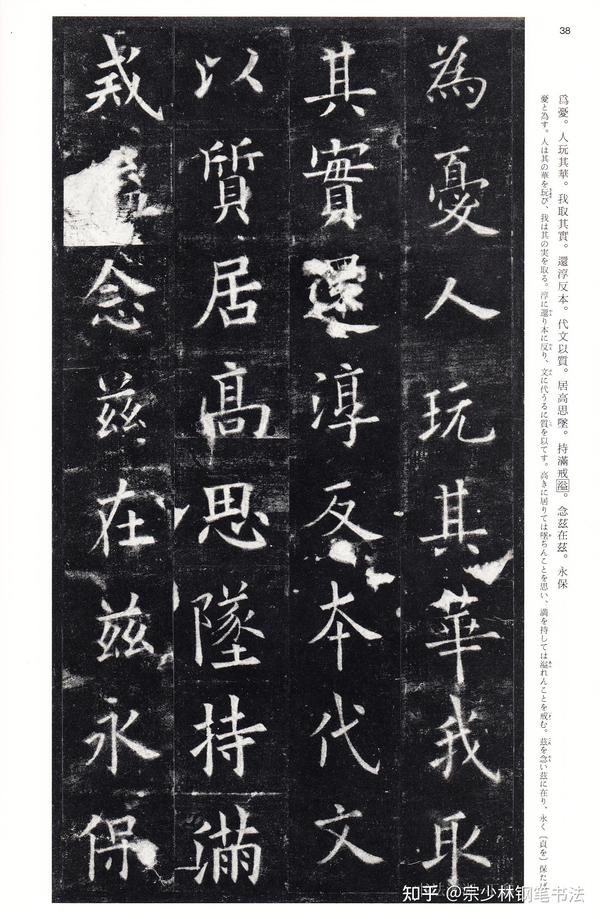 38
爲憂。人玩其華。我取其實。還淳反本。代文以質。居高思墜。持滿戒溢。念茲在茲。永保
憂と為す。人は其の華を玩び、我は其の実を取る。淳に還り本に反り、文に代うるに質を以てす。高きに居りては墜ちんことを思い、満を持しては溢れんことを戒む。茲を念い茲に在り、永く〔貞を〕保たば
為憂人玩其華我取
其實還淳反本代文
以質居高思墜持滿
戒念茲在茲永保
知乎 @宗少林钢笔书法